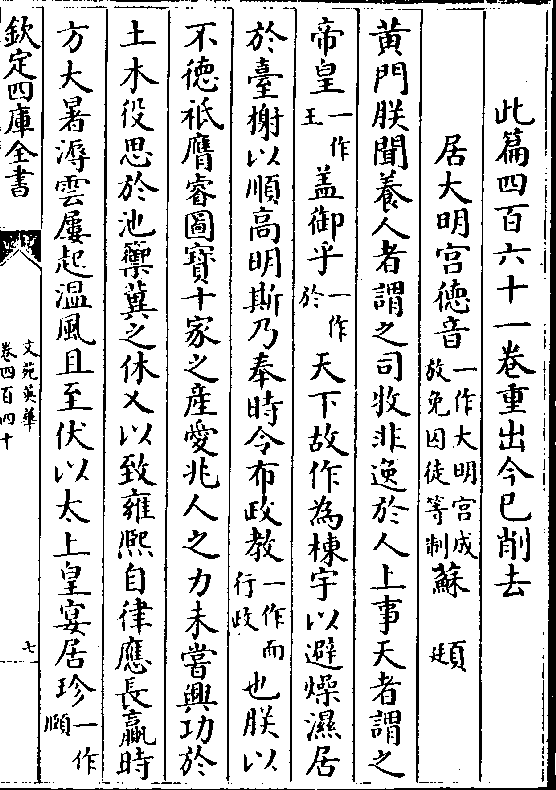 此篇四百六十一卷重出今已削去
居大明宫德音一作大明宫成放免囚徒等制 蘇頲
黄門朕聞養人者謂之司牧非逸於人上事天者謂之
帝皇一作王盖御乎一作於天下故作為棟宇以避燥濕居
於臺榭以順高明斯乃奉時令布政教一作而行政也朕以
不德祗膺睿圖寳十家之産愛兆人之力未嘗興功於
土木役思於池籞冀之休乂以致雍熙自律應長嬴時
方大暑溽雲屢起温風且至伏以太上皇宴居珍一作頤
欽定四庫全書
文苑英華
卷四百四十
七